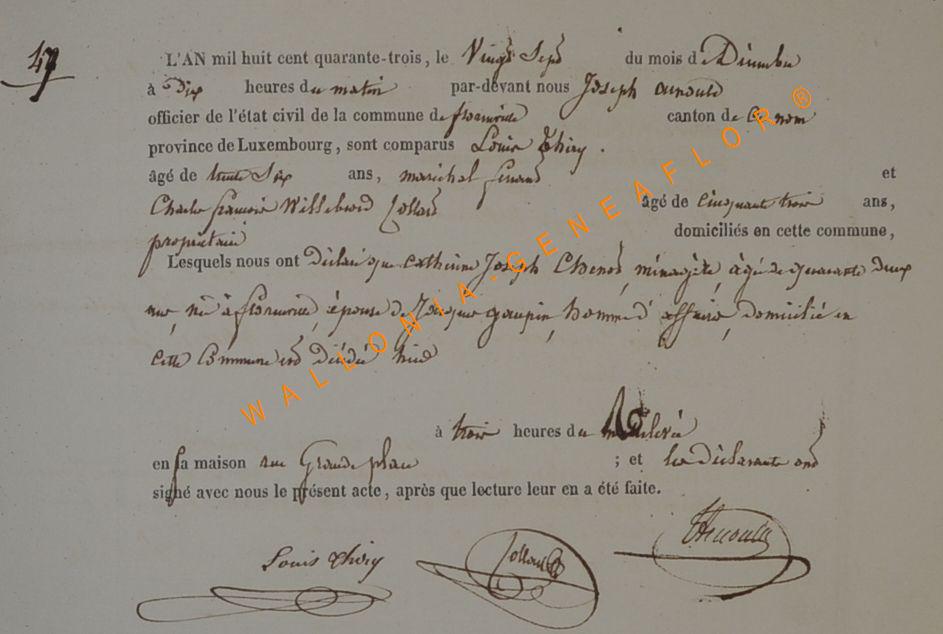 47
L'AN mil huit cent quarante-trois, le Vingt Sept du mois de Décembre
à Dix heures du matin par-devant nous Joseph arnould
officier de l'état civil de la commune de florenville canton de ce nom
province de Luxembourg, sont comparus Louis Thiry.
âgé de trente Six ans, maréchal ferrant et
Charles françois Willebrord Collard âgé de Cinquante trois ans,
propriétaire domiciliés en cette commune,
Lesquels nous ont déclaré que Catherine Joseph, ménagère, âgée de quarante deux
ans, née à florenville, épouse de Jacques goupin, homme d'affaire, domiciliée en
cette Commune est décédée hier
à trois heures de
en sa maison rue Grande place ; et les déclarants ont
signé avec nous le présent acte, après que lecture leur en a été faite.
Louis thiry Collard Arnould
WALLONIA-GENEAFLOR®